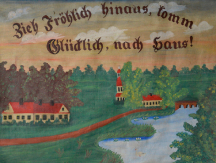 Zieh Fröhlich hinaus, komm
Glücklich, nach Haus!